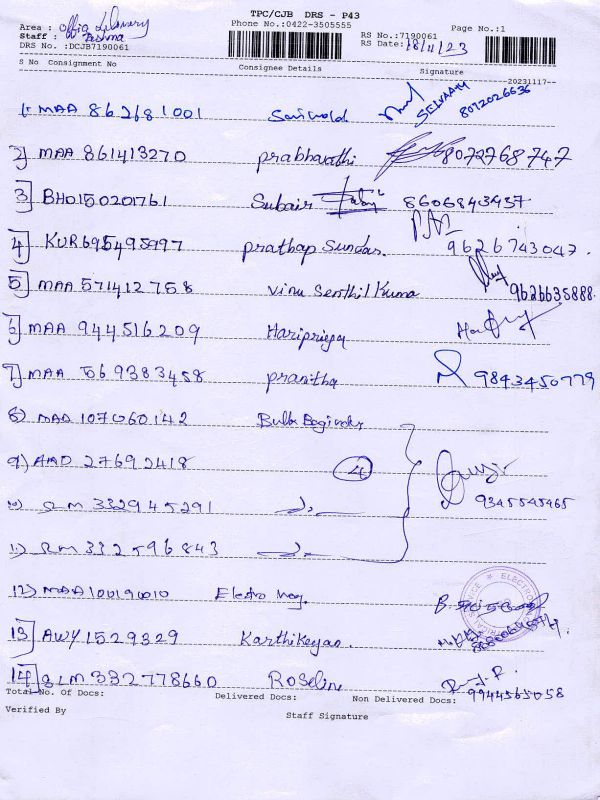 TPC/CJB DRS - P43
Area : Office Delivery Phone No.:0422-3505555 Page No.:1
Staff : RS No.:7190061
DRS No. :DCJB7190061 RS Date: 18/11/23
S No Consignment No Consignee Details Signature
--20231117--
1. MAA 862681001 SELVAM 8072026636
2] MAA 861413270 prabhavathi 8072768747
3] BHO150201761 Subair 8606843437
4] KUR695495997 prathap Sundar. 9626743047.
5] MAA 571412758 Vinu Senthil Kuma 9626635888.
6] MAA 944516209 Haripriya
7] MAA 569383458 pranitha 9843450779
8) MAA 107060142
9) AMD 27692418 4
10) SLM 332945291
9345545465
11) SLM 332596843
12) MAA100190010 Electro Mag.
13] AWY1529329 Karthikeyan.
14] SLM 332778660 Roseline 9944565058
Total No. Of Docs: Delivered Docs: Non Delivered Docs:
Verified By Staff Signature